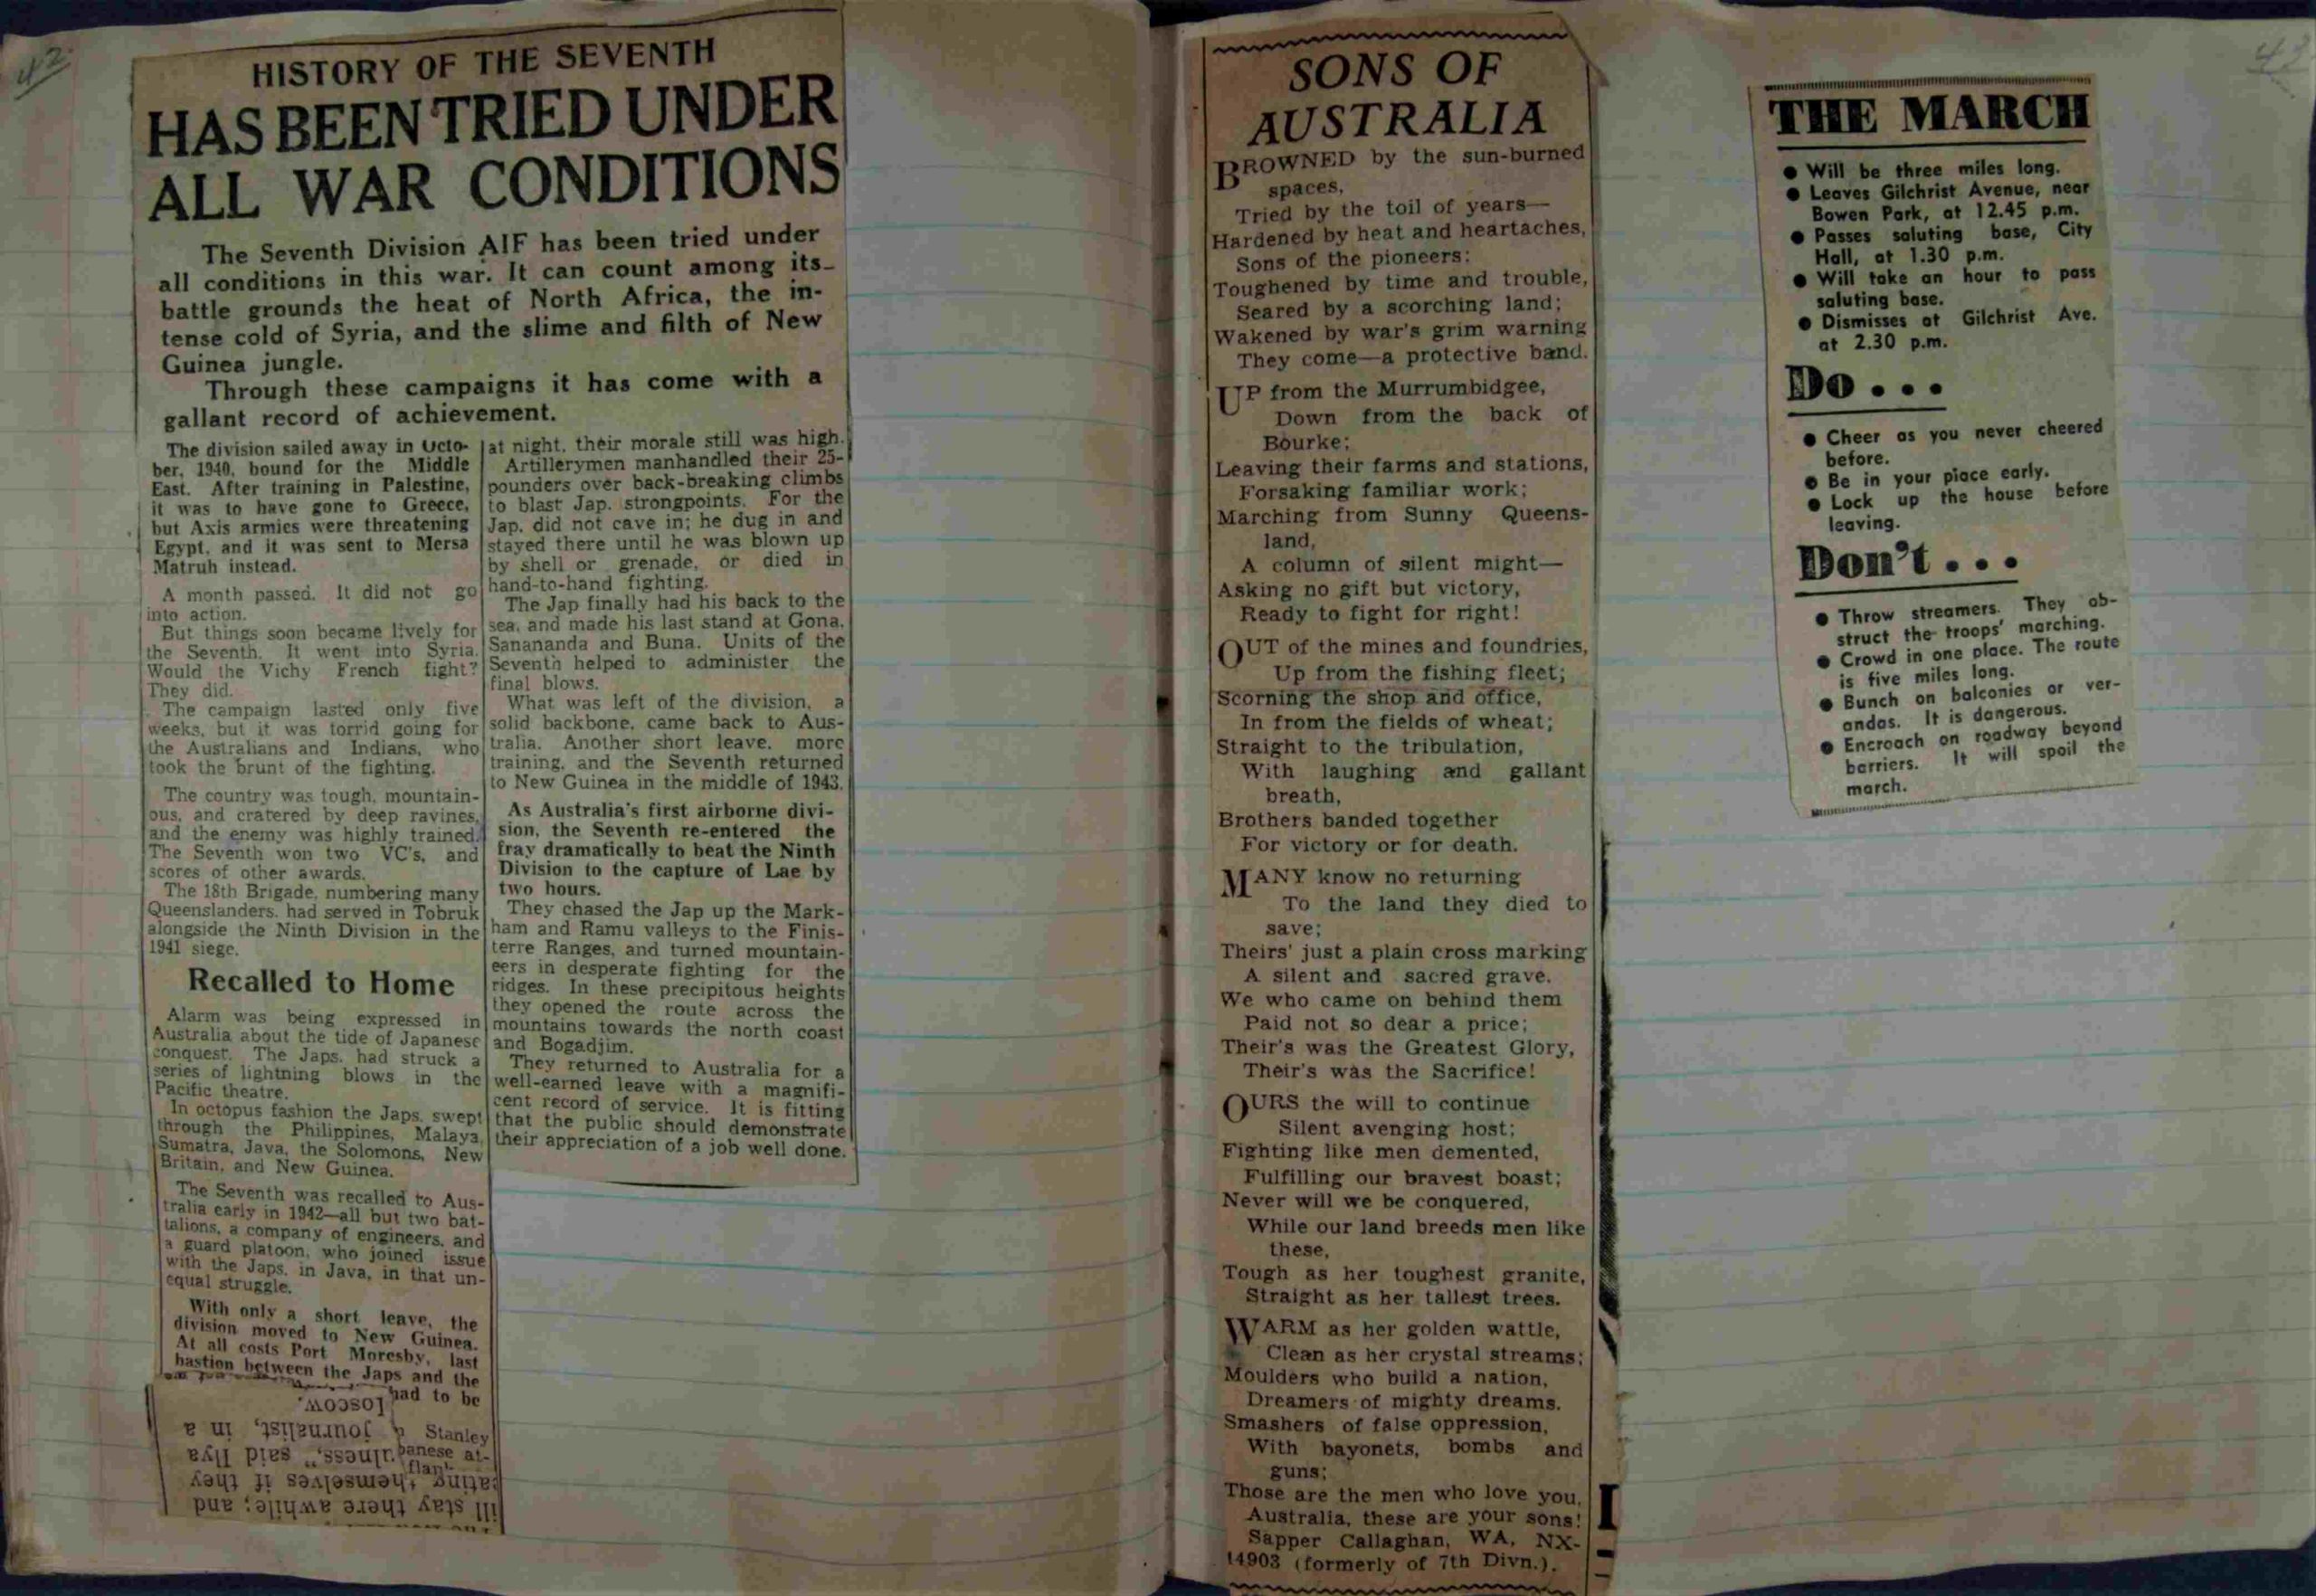 42
HISTORY OF THE SEVENTH
HAS BEEN TRIED UNDER
ALL WAR CONDITIONS
The Seventh Division AIF has been tried under
all conditions in this war. It can count among its
battle grounds the heat of North Africa, the in-
tense cold of Syria, and the slime and filth of New
Guinea jungle.
Through these campaigns it has come with a
gallant record of achievement.
The division sailed away in Octo-
ber, 1940, bound for the Middle
East. After training in Palestine,
it was to have gone to Greece,
but Axis armies were threatening
Egypt, and it was sent to Mersa
Matruh instead.
A month passed. It did not go
into action.
But things soon became lively for
the Seventh. It went into Syria.
Would the Vichy French fight?
They did.
The campaign lasted only five
weeks, but it was torrid going for
the Australians and Indians, who
took the brunt of the fighting.
The country was tough, mountain-
ous, and cratered by deep ravines,
and the enemy was highly trained.
The Seventh won two VC's, and
scores of other awards.
The 18th Brigade, numbering many
Queenslanders, had served in Tobruk
alongside the Ninth Division in the
1941 siege.
Recalled to Home
Alarm was being expressed in
Australia about the tide of Japanese
conquest. The Japs. had struck a
series of lightning blows in the
Pacific theatre.
In octopus fashion the Japs. swept
through the Philippines, Malaya,
Sumatra, Java, the Solomons, New
Britain, and New Guinea.
The Seventh was recalled to Aus-
tralia early in 1942—all but two bat-
talions, a company of engineers, and
a guard platoon, who joined issue
with the Japs. in Java, in that un-
equal struggle.
With only a short leave, the
division moved to New Guinea.
At all costs Port Moresby, last
bastion between the Japs and the
had to be
Stanley
panese at-
flan
ill stay there awhile; and
ating themselves if they
ulness," said Ilya
journalist, in a
loscow.
at night, their morale still was high.
Artillerymen manhandled their 25-
pounders over back-breaking climbs
to blast Jap. strongpoints. For the
Jap. did not cave in; he dug in and
stayed there until he was blown up
by shell or grenade, or died in
hand-to-hand fighting.
The Jap finally had his back to the
sea, and made his last stand at Gona,
Sanananda and Buna. Units of the
Seventh helped to administer the
final blows.
What was left of the division, a
solid backbone, came back to Aus-
tralia. Another short leave, more
training, and the Seventh returned
to New Guinea in the middle of 1943.
As Australia's first airborne divi-
sion, the Seventh re-entered the
fray dramatically to beat the Ninth
Division to the capture of Lae by
two hours.
They chased the Jap up the Mark-
ham and Ramu valleys to the Finis-
terre Ranges, and turned mountain-
eers in desperate fighting for the
ridges. In these precipitous heights
they opened the route across the
mountains towards the north coast
and Bogadjim.
They returned to Australia for a
well-earned leave with a magnifi-
cent record of service. It is fitting
that the public should demonstrate
their appreciation of a job well done.
SONS OF
AUSTRALIA
BROWNED by the sun-burned
spaces,
Tried by the toil of years—
Hardened by heat and heartaches,
Sons of the pioneers:
Toughened by time and trouble,
Seared by a scorching land;
Wakened by war's grim warning
They come—a protective band.
UP from the Murrumbidgee,
Down from the back of
Bourke;
Leaving their farms and stations,
Forsaking familiar work;
Marching from Sunny Queens-
land,
A column of silent might—
Asking no gift but victory,
Ready to fight for right!
OUT of the mines and foundries,
Up from the fishing fleet;
Scorning the shop and office,
In from the fields of wheat;
Straight to the tribulation,
With laughing and gallant
breath,
Brothers banded together
For victory or for death.
MANY know no returning
To the land they died to
save;
Theirs' just a plain cross marking
A silent and sacred grave.
We who came on behind them
Paid not so dear a price;
Their's was the Greatest Glory,
Their's was the Sacrifice!
OURS the will to continue
Silent avenging host;
Fighting like men demented,
Fulfilling our bravest boast;
Never will we be conquered,
While our land breeds men like
these,
Tough as her toughest granite,
Straight as her tallest trees.
WARM as her golden wattle,
Clean as her crystal streams;
Moulders who build a nation,
Dreamers of mighty dreams.
Smashers of false oppression,
With bayonets, bombs and
guns;
Those are the men who love you,
Australia, these are your sons!
Sapper Callaghan, WA, NX-
14903 (formerly of 7th Divn.).
43
THE MARCH
● Will be three miles long.
● Leaves Gilchrist Avenue, near
Bowen Park, at 12.45 p.m.
● Passes saluting base, City
Hall, at 1.30 p.m.
● Will take an hour to pass
saluting base.
● Dismisses at Gilchrist Ave.
at 2.30 p.m.
Do . . .
● Cheer as you never cheered
before.
● Be in your place early.
● Lock up the house before
leaving.
Don't . . .
● Throw streamers. They ob-
struct the troops' marching.
● Crowd in one place. The route
is five miles long.
● Bunch on balconies or ver-
andas. It is dangerous.
● Encroach on roadway beyond
barriers. It will spoil the
march.